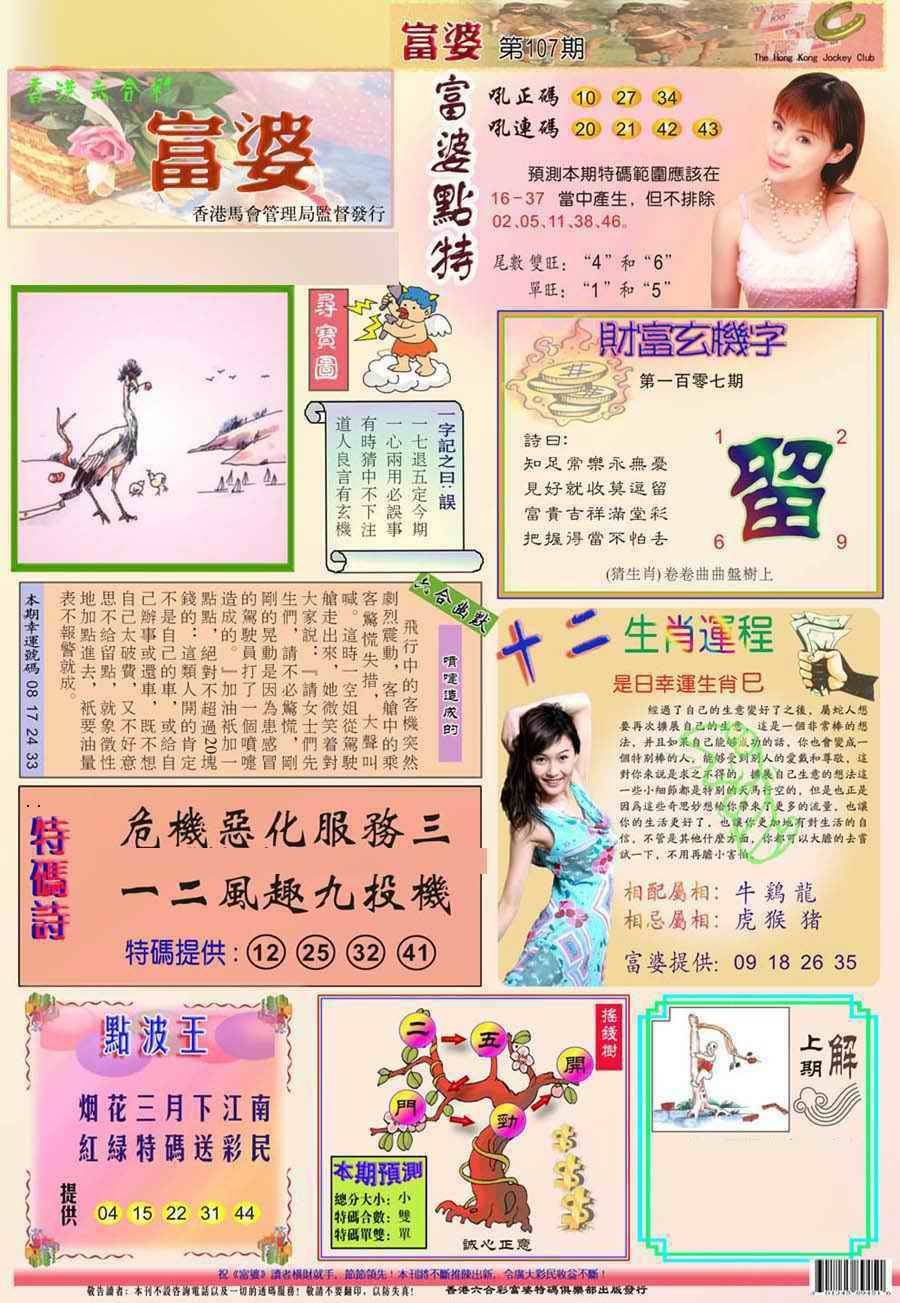 富婆 第107期
The Hong Kong Jockey Club
香港六合彩
富婆
香港馬會管理局監督發行
富婆點特
吼正碼 10 27 34
吼連碼 20 21 42 43
預測本期特碼範圍應該在
16-37 當中產生，但不排除
02、05、11、38、46。
尾數雙旺：“4”和“6”
單旺：“1”和“5”
尋寶圖
一字記之曰：誤
一七退五定今期
一心兩用必誤事
有時猜中不下注
道人良言有玄機
財富玄機字
第一百零七期
詩曰：
知足常樂永無憂
見好就收莫逗留
富貴吉祥滿堂彩
把握得當不怕丟
1 2
留
6 9
(猜生肖)卷卷曲曲盤樹上
六合幽默
噴嚏造成的
飛行中的客機突然
劇烈震動，客艙中的乘
客驚慌失措，大聲叫
喊。這時一空姐從駕駛
艙走出來，她微笑着對
大家說：『請女士們先
生們，請不必驚慌，剛
剛的晃動是因為患感冒
的駕駛員打了一個噴嚏
造成的。』加油祇加一
點點，絕對不超過20塊
錢的：這類人開的肯定
不是自己的車，或給自
己辦事或還車，既不想
自己太破費，又不好意
思不給留點，就象徵性
地加點進去，祇要油量
表不報警就成。
本期幸運號碼 08 17 24 33
十二生肖運程
是日幸運生肖巳
經過了自己的生意變好了之後，屬蛇人想
要再次擴展自己的生意，這是一個非常棒的想
法，并且如果自己能够成功的話，你也會變成一
個特別棒的人，能够受到別人的愛戴和尊敬，這
對你來說是求之不得的，擴展自己生意的想法這
一些小細節都是特別的天馬行空的，但是也正是
因為這些奇思妙想給你帶來了更多的流量，也讓
你的生活更好了，也讓你更加地有對生活的自
信，不管是其他什麼方面，你都可以大膽的去嘗
試一下，不用再膽小害怕。
相配屬相：牛 鷄 龍
相忌屬相：虎 猴 猪
富婆提供：09 18 26 35
特碼詩
危機惡化服務三
一二風趣九投機
特碼提供：12 25 32 41
點波王
烟花三月下江南
紅緑特碼送彩民
提供 04 15 22 31 44
搖錢樹
二 五
開
門 勁
本期預測
總分大小：小
特碼合數：雙
特碼單雙：單
誠心正意
上期解
祝《富婆》讀者橫財就手，節節領先！本刊將不斷推陳出新，令廣大彩民收益不斷！
敬告讀者：本刊不設咨詢電話以及一切的透碼服務！敬請不要翻印，以防失真！
香港六合彩富婆特碼俱樂部出版發行